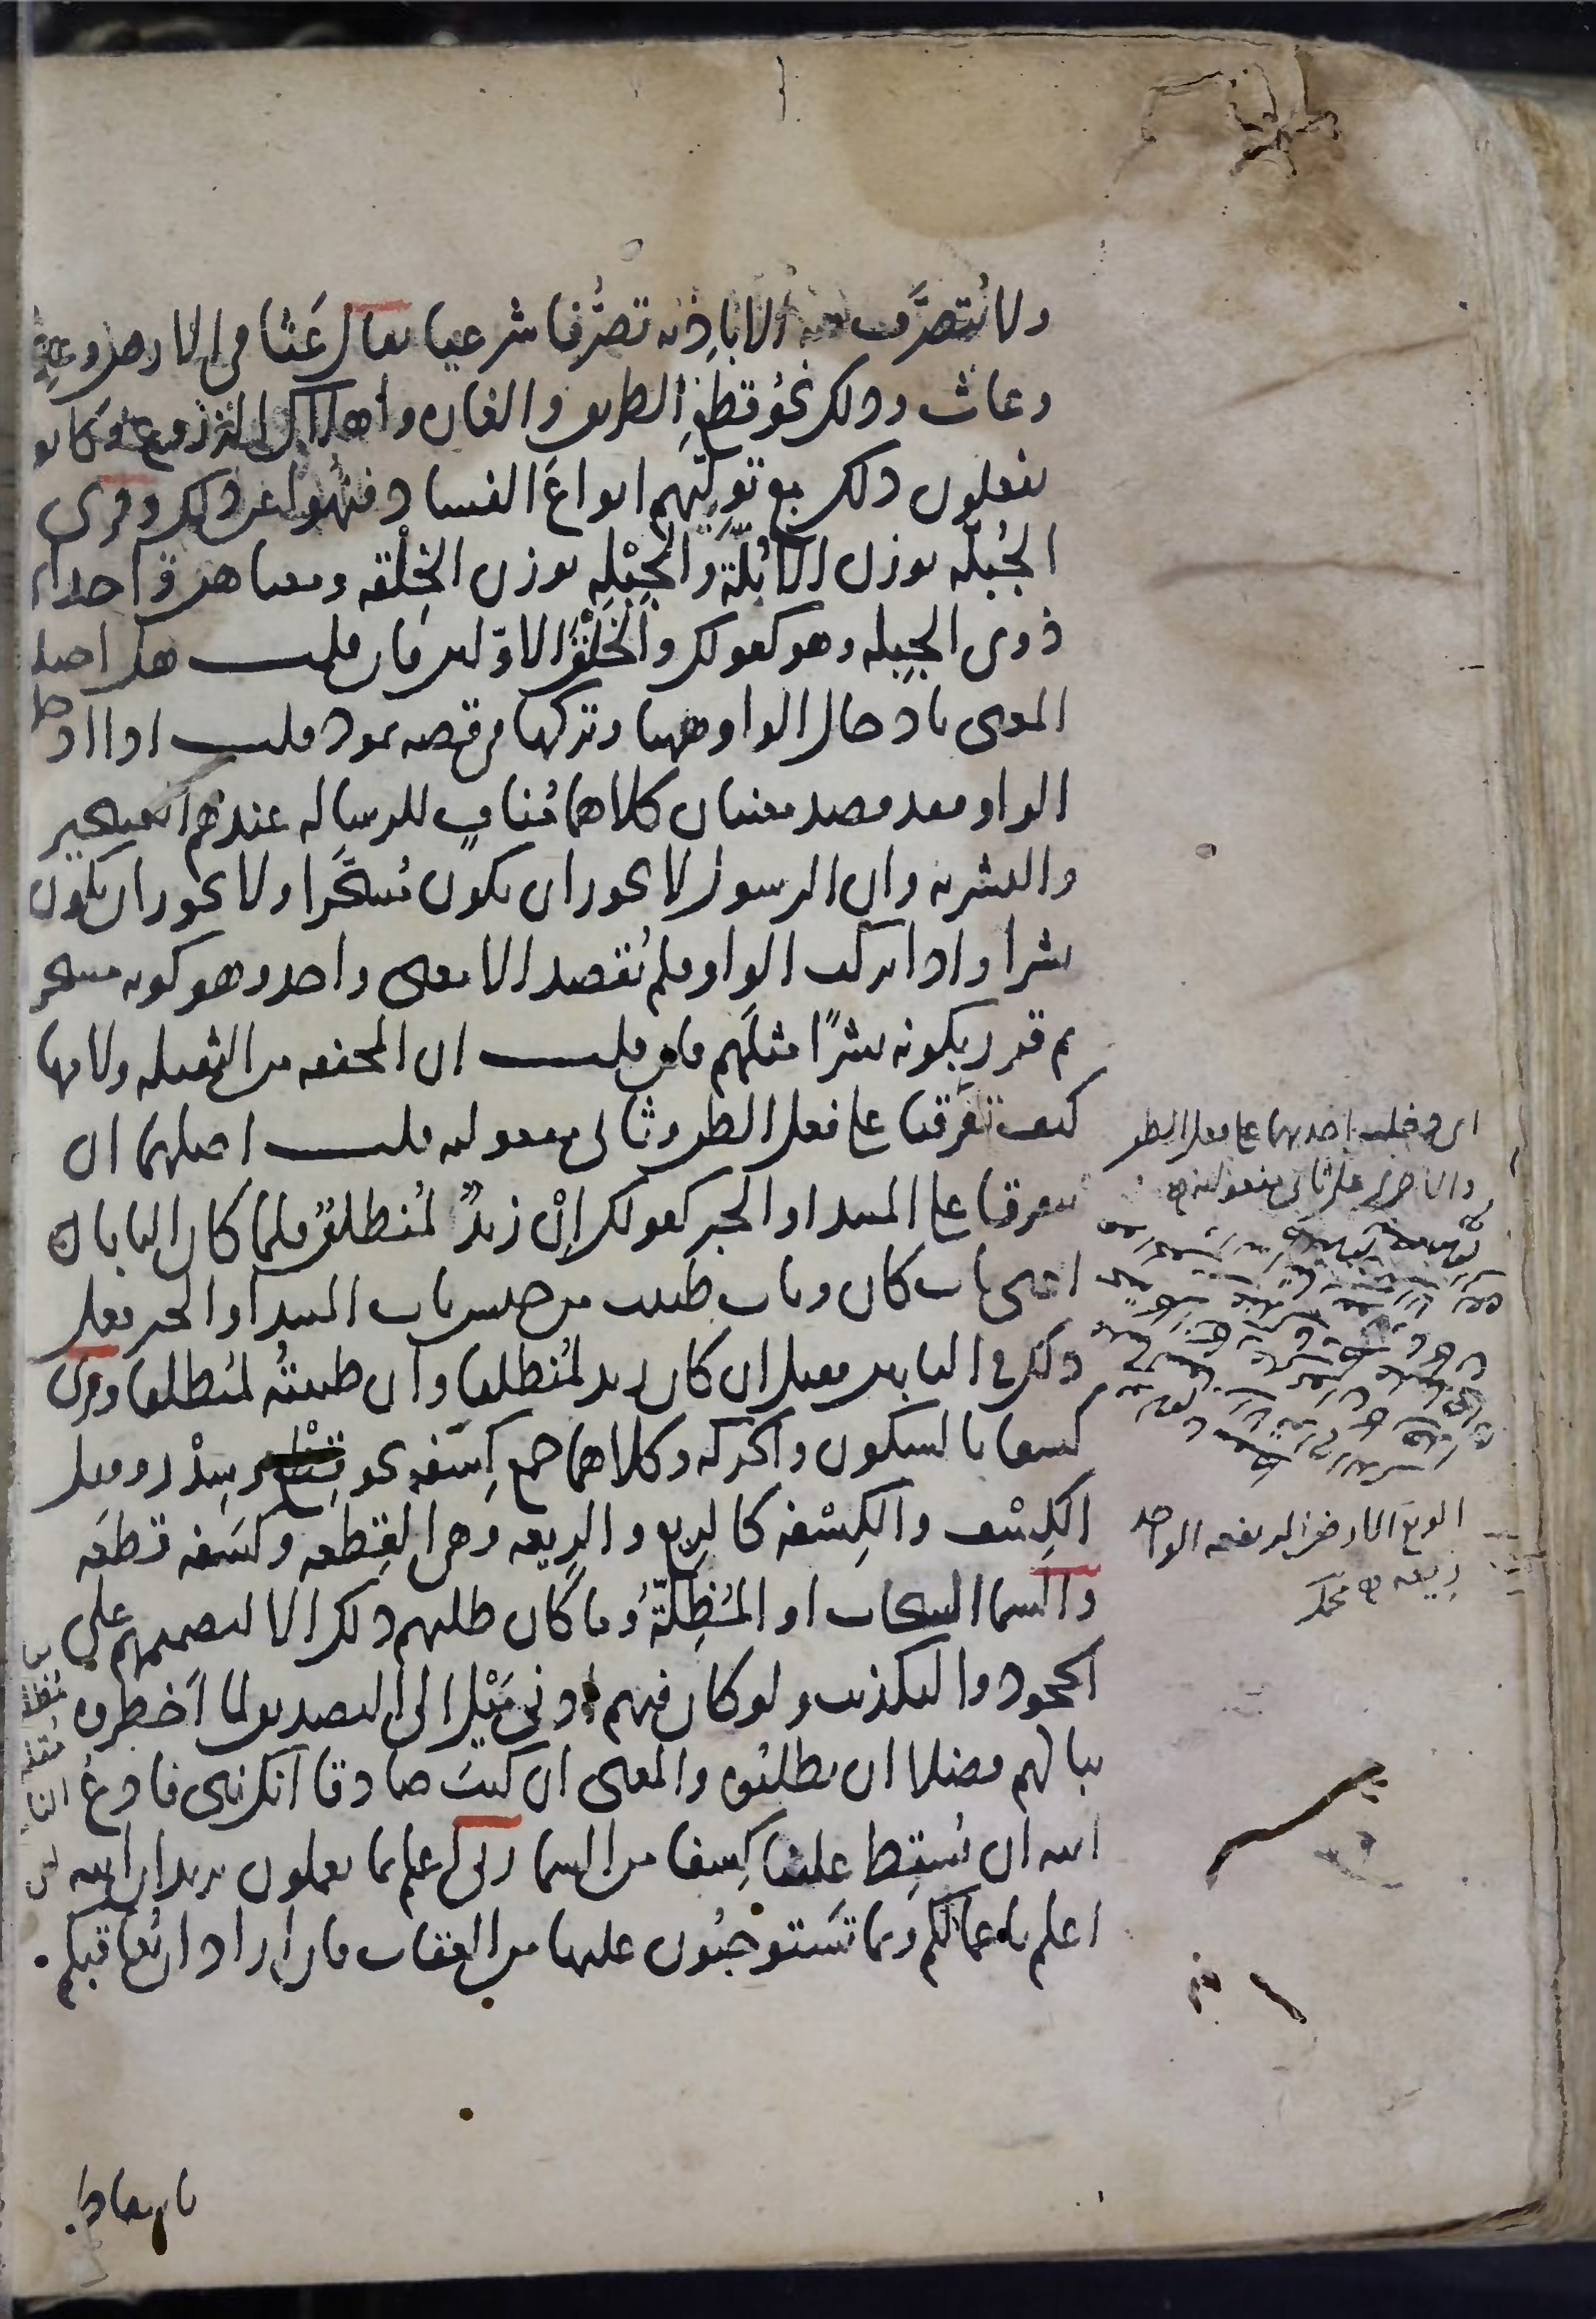 ولا يُتصرَّف فيه الا باذنه تصرُّفا شرعيا يقال عَثا في الارض وعثى
وعاث وذلك نحو قطع الطريق والغارة واهلاك الزروع وكانوا
يفعلون ذلك مع تولّيهم انواع الفساد فنُهوا عن ذلك وقرئ
الجُبُلّة بوزن الأُبُلّة والجِبْلة بوزن الخِلْقة ومعناهن واحد اي
ذوي الجبلة وهو كقولك والخَلْق الاوّلين فان قلت هل اختلف
المعنى بادخال الواو ههنا وتركها في قصة ثمود قلت اذا ادخلت
الواو فقد قصد معنيان كلاهما مُنافٍ للرسالة عندهم التسحير
والبشرية وان الرسول لا يجوز ان يكون مُسحَّرا ولا يجوز ان يكون
بشرا واذا تركت الواو فلم يُقصد الا معنى واحد وهو كونه مسحرا
ثم قرر بكونه بشرًا مثلَهم فان قلت ان المخففة من الثقيلة ولامها
كيف تفرّقتا على فعل الظن وثاني مفعوليه قلت اصلهما ان
يتفرقا على المبتدا والخبر كقولك إنْ زيدٌ لمُنطلقٌ فلما كان البابان
اعني باب كان وباب ظننت من جنس باب المبتدا والخبر فعل
ذلك في البابين فقيل ان كان زيد لمُنطلقا وان ظننتُه لمُنطلقا وقرئ
كسفا بالسكون والحركة وكلاهما جمع كِسْفه نحو قِطْع وسِدْر وقيل
الكِسْف والكِسْفة كالريع والريعة وهي القِطعة وكسَفه قطعَه
والسما السحاب او المُظِلّةُ وما كان طلبهم ذلك الا لتصميمهم على
الجحود والتكذيب ولو كان فيهم ادنى مَيْل الى التصديق لما اخطروه
ببالهم فضلا ان يطلبُوه والمعنى ان كنتَ صادقا انك نبي فادعُ
الله ان يُسقِط علينا كِسفا من السما ربي اعلم بما تعملون يريد ان الله
اعلم باعمالكم وبما تَستوجبُون عليها من العقاب فان اراد ان يُعاقبكم
اي دخلت احديهما على فعل الظن
والاخرى على ثاني مفعوليه
الريع الارض المرتفعة الواحد
ريعة
باسقاط